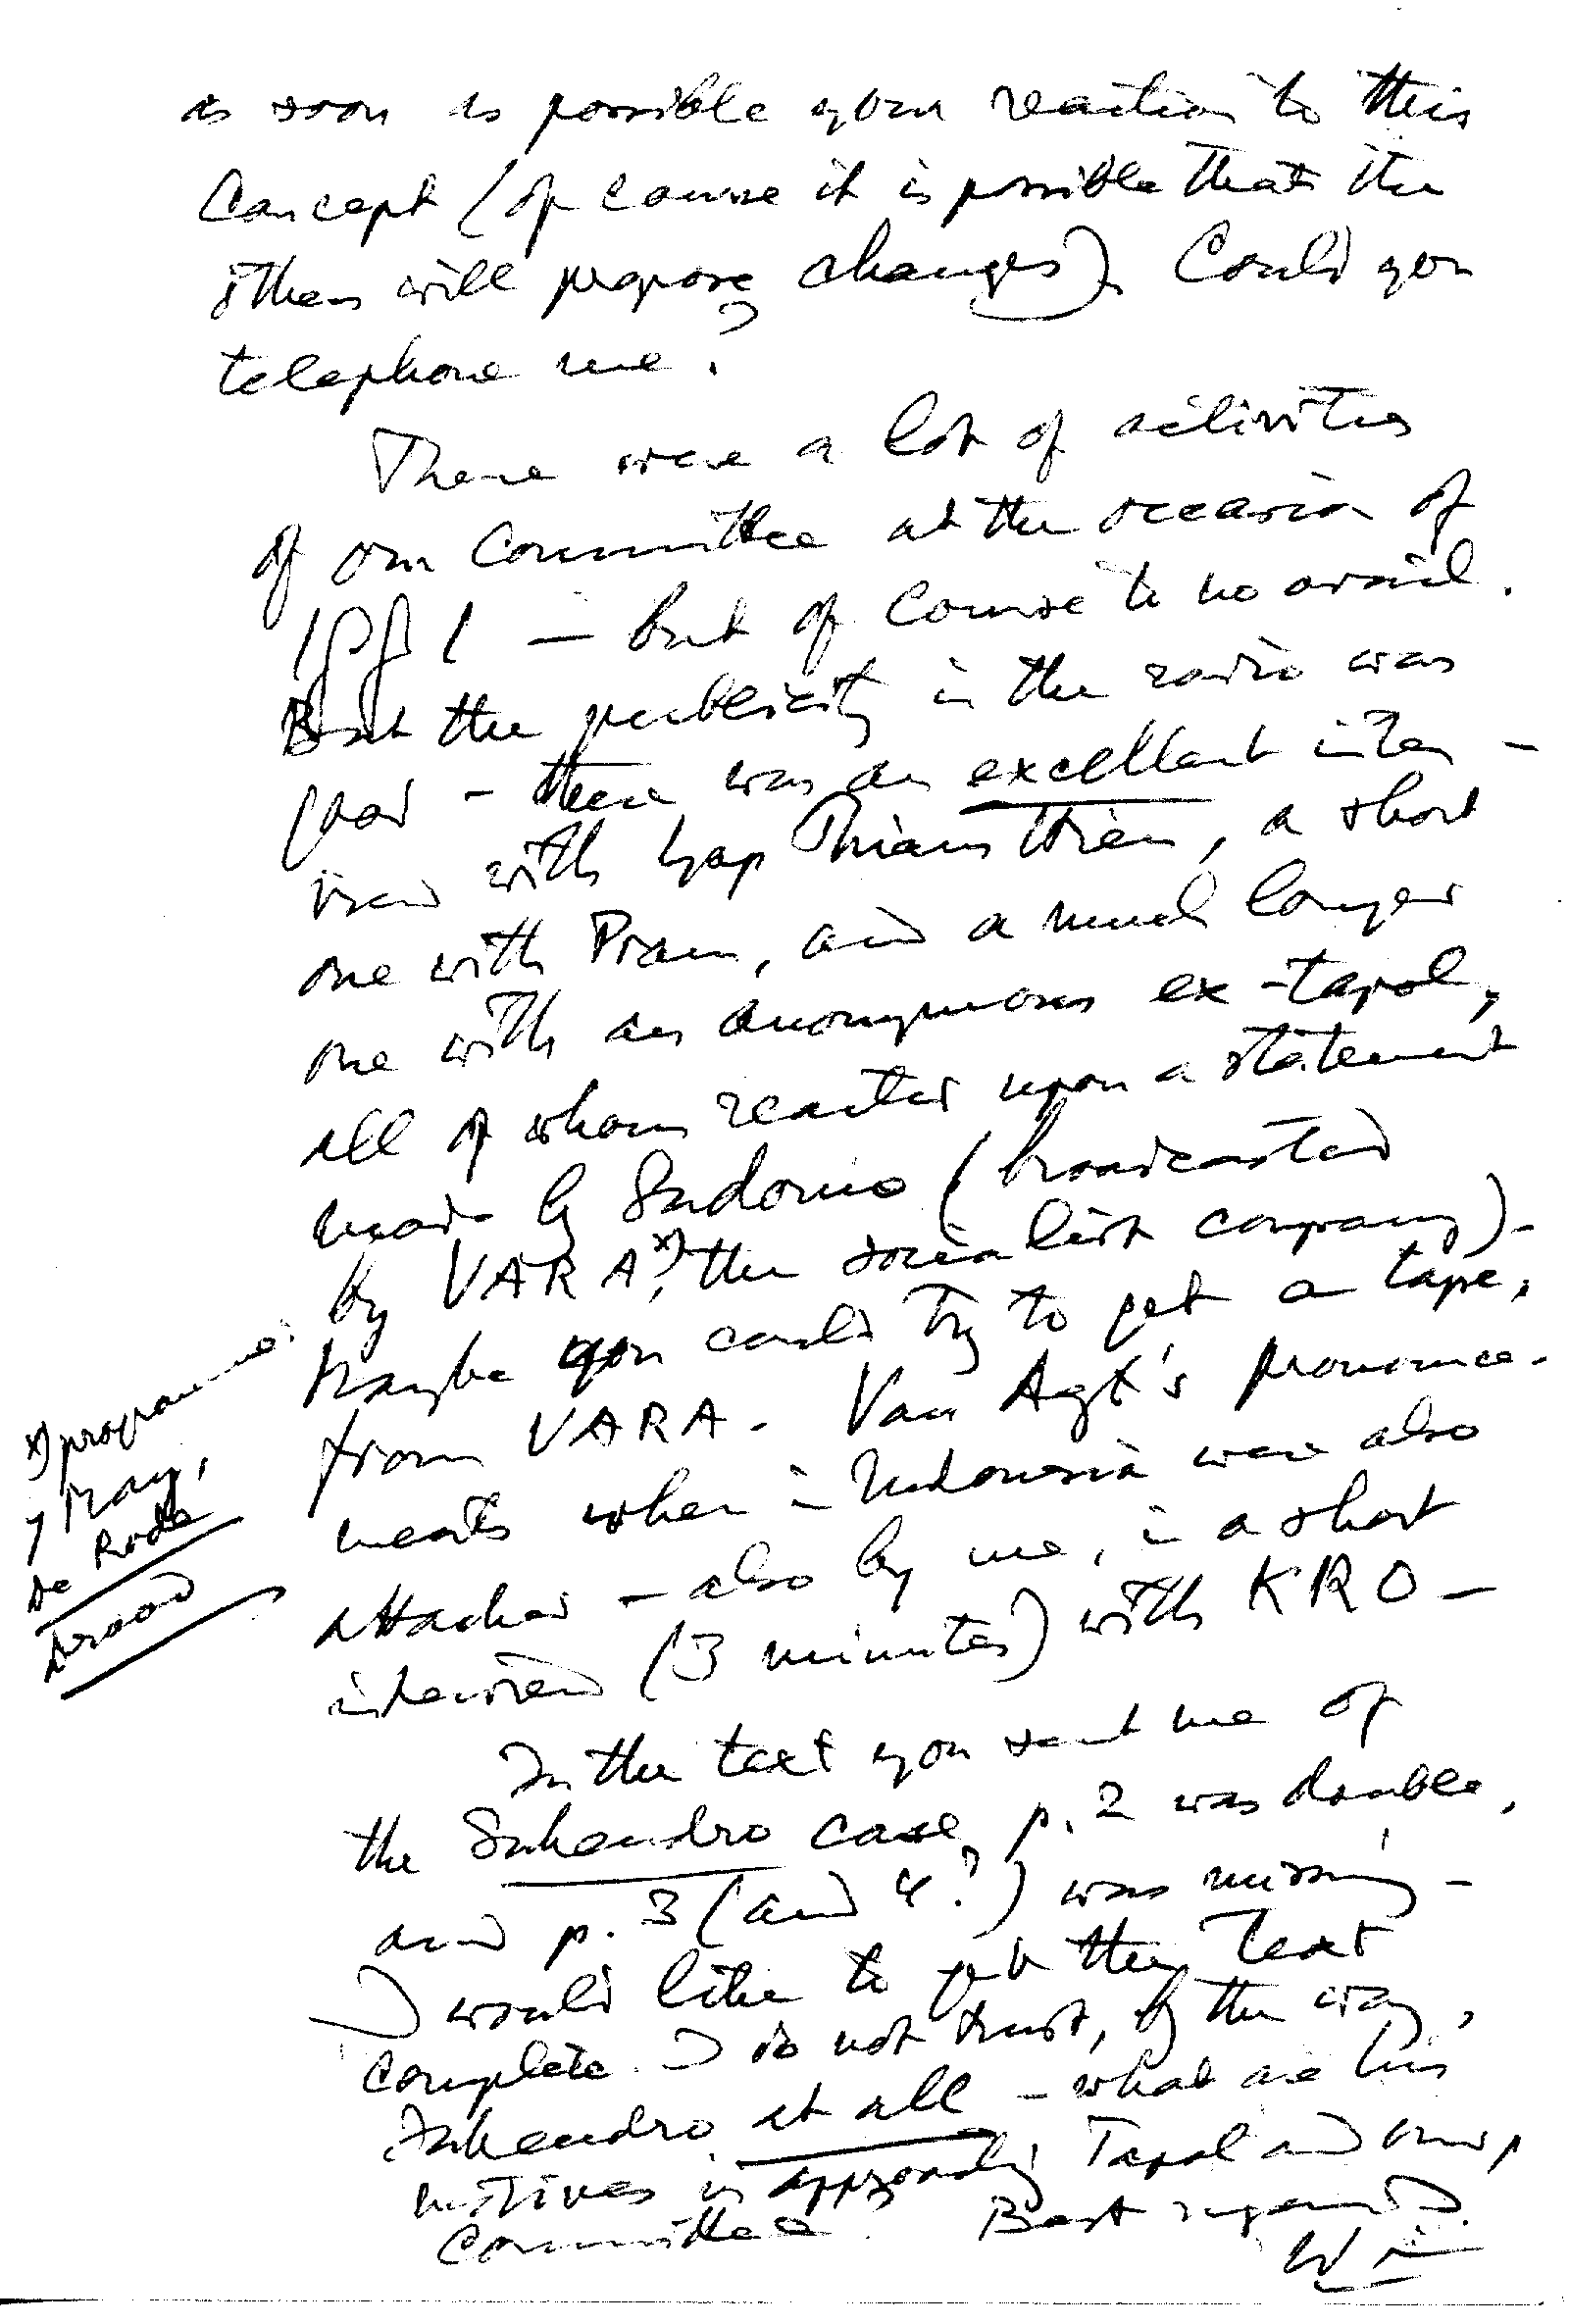 as soon as possible your reaction to this
Concept (of course it is possible that the
others will propose changes). Could you
telephone me?
There were a lot of activities
of our Committee at the occasion of
IGGI – but of course to no avail.
But the publicity in the radio was
good – there was an excellent inter-
view with Yap Thiam Hien, a short
one with Pram, and a much longer
one with an anonymous ex-tapol,
all of whom reacted upon a statement
made by Sudomo (broadcasted
by VARA*), the socialist company) –
Maybe you could try to get a tape,
from VARA. Van Agt's pronounce-
ments when in Indonesia were also
attacked – also by me, in a short
interview (3 minutes) with KRO –
*) programme
7 May,
De Rode
Draad
In the text you sent me of
the Suhendro case, p. 2 was double,
and p. 3 (and 4?) was missing –
I would like to get the text
complete. I do not trust, by the way,
Suhendro at all – what are his
motives in approaching Tapol and our
Committee? Best regards.
Wim